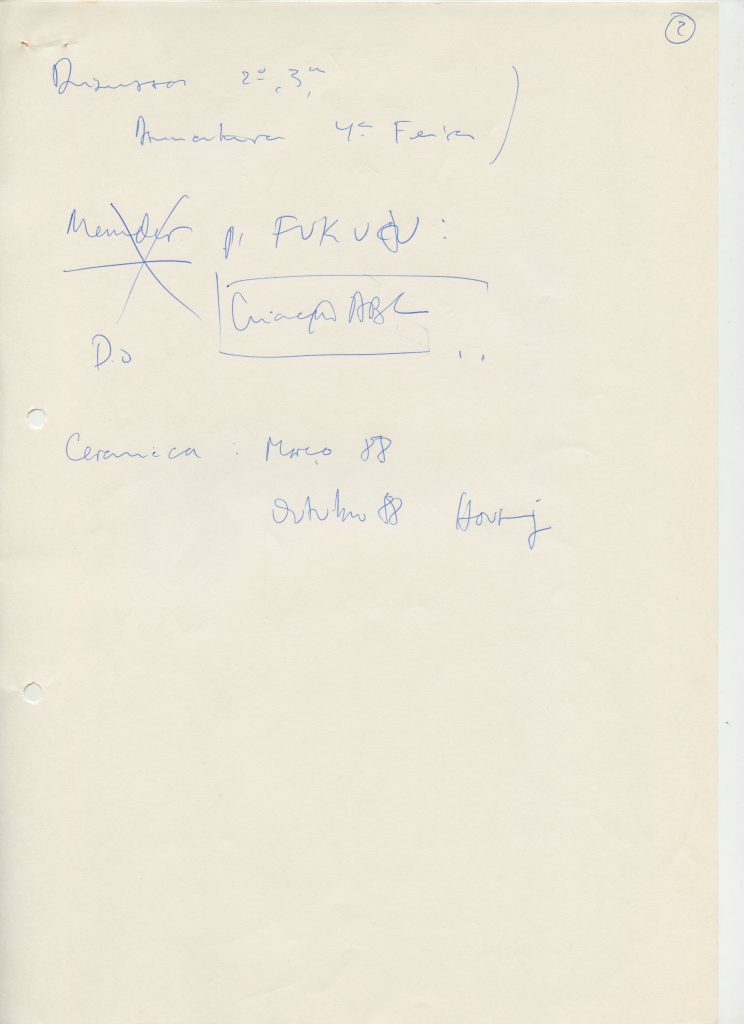 2
Discussão 2ª, 3ª
Assinatura 4ª Feira )
p/ FUKUDU :
Criação ABC
Do ..
Ceramica : Março 88
Outubro 88